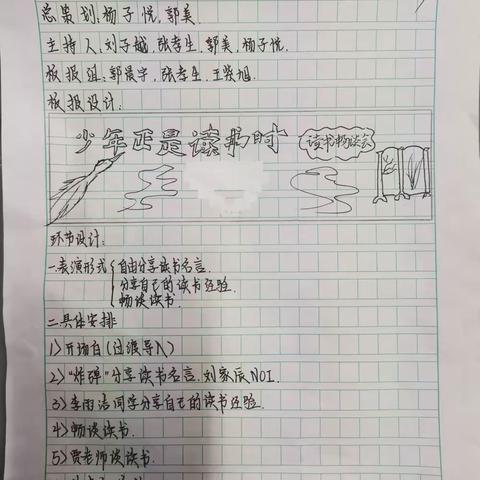 总策划:杨子悦,郭美
主持人:刘子越,张孝生,郭美,杨子悦.
板报组:郭晨宇,张孝生,王奕旭.
板报设计:
少年正是读书时
读书畅谈会
环节设计:
一.表演形式{自由分享读书名言.
分享自己的读书经验.
畅谈读书.
二.具体安排
1>开场白(过渡导入)
2>"炸弹"分享读书名言.刘家辰NO1.
3>李雨洁同学分享自己的读书经验.
4>畅谈读书.
5>贾老师谈读书.